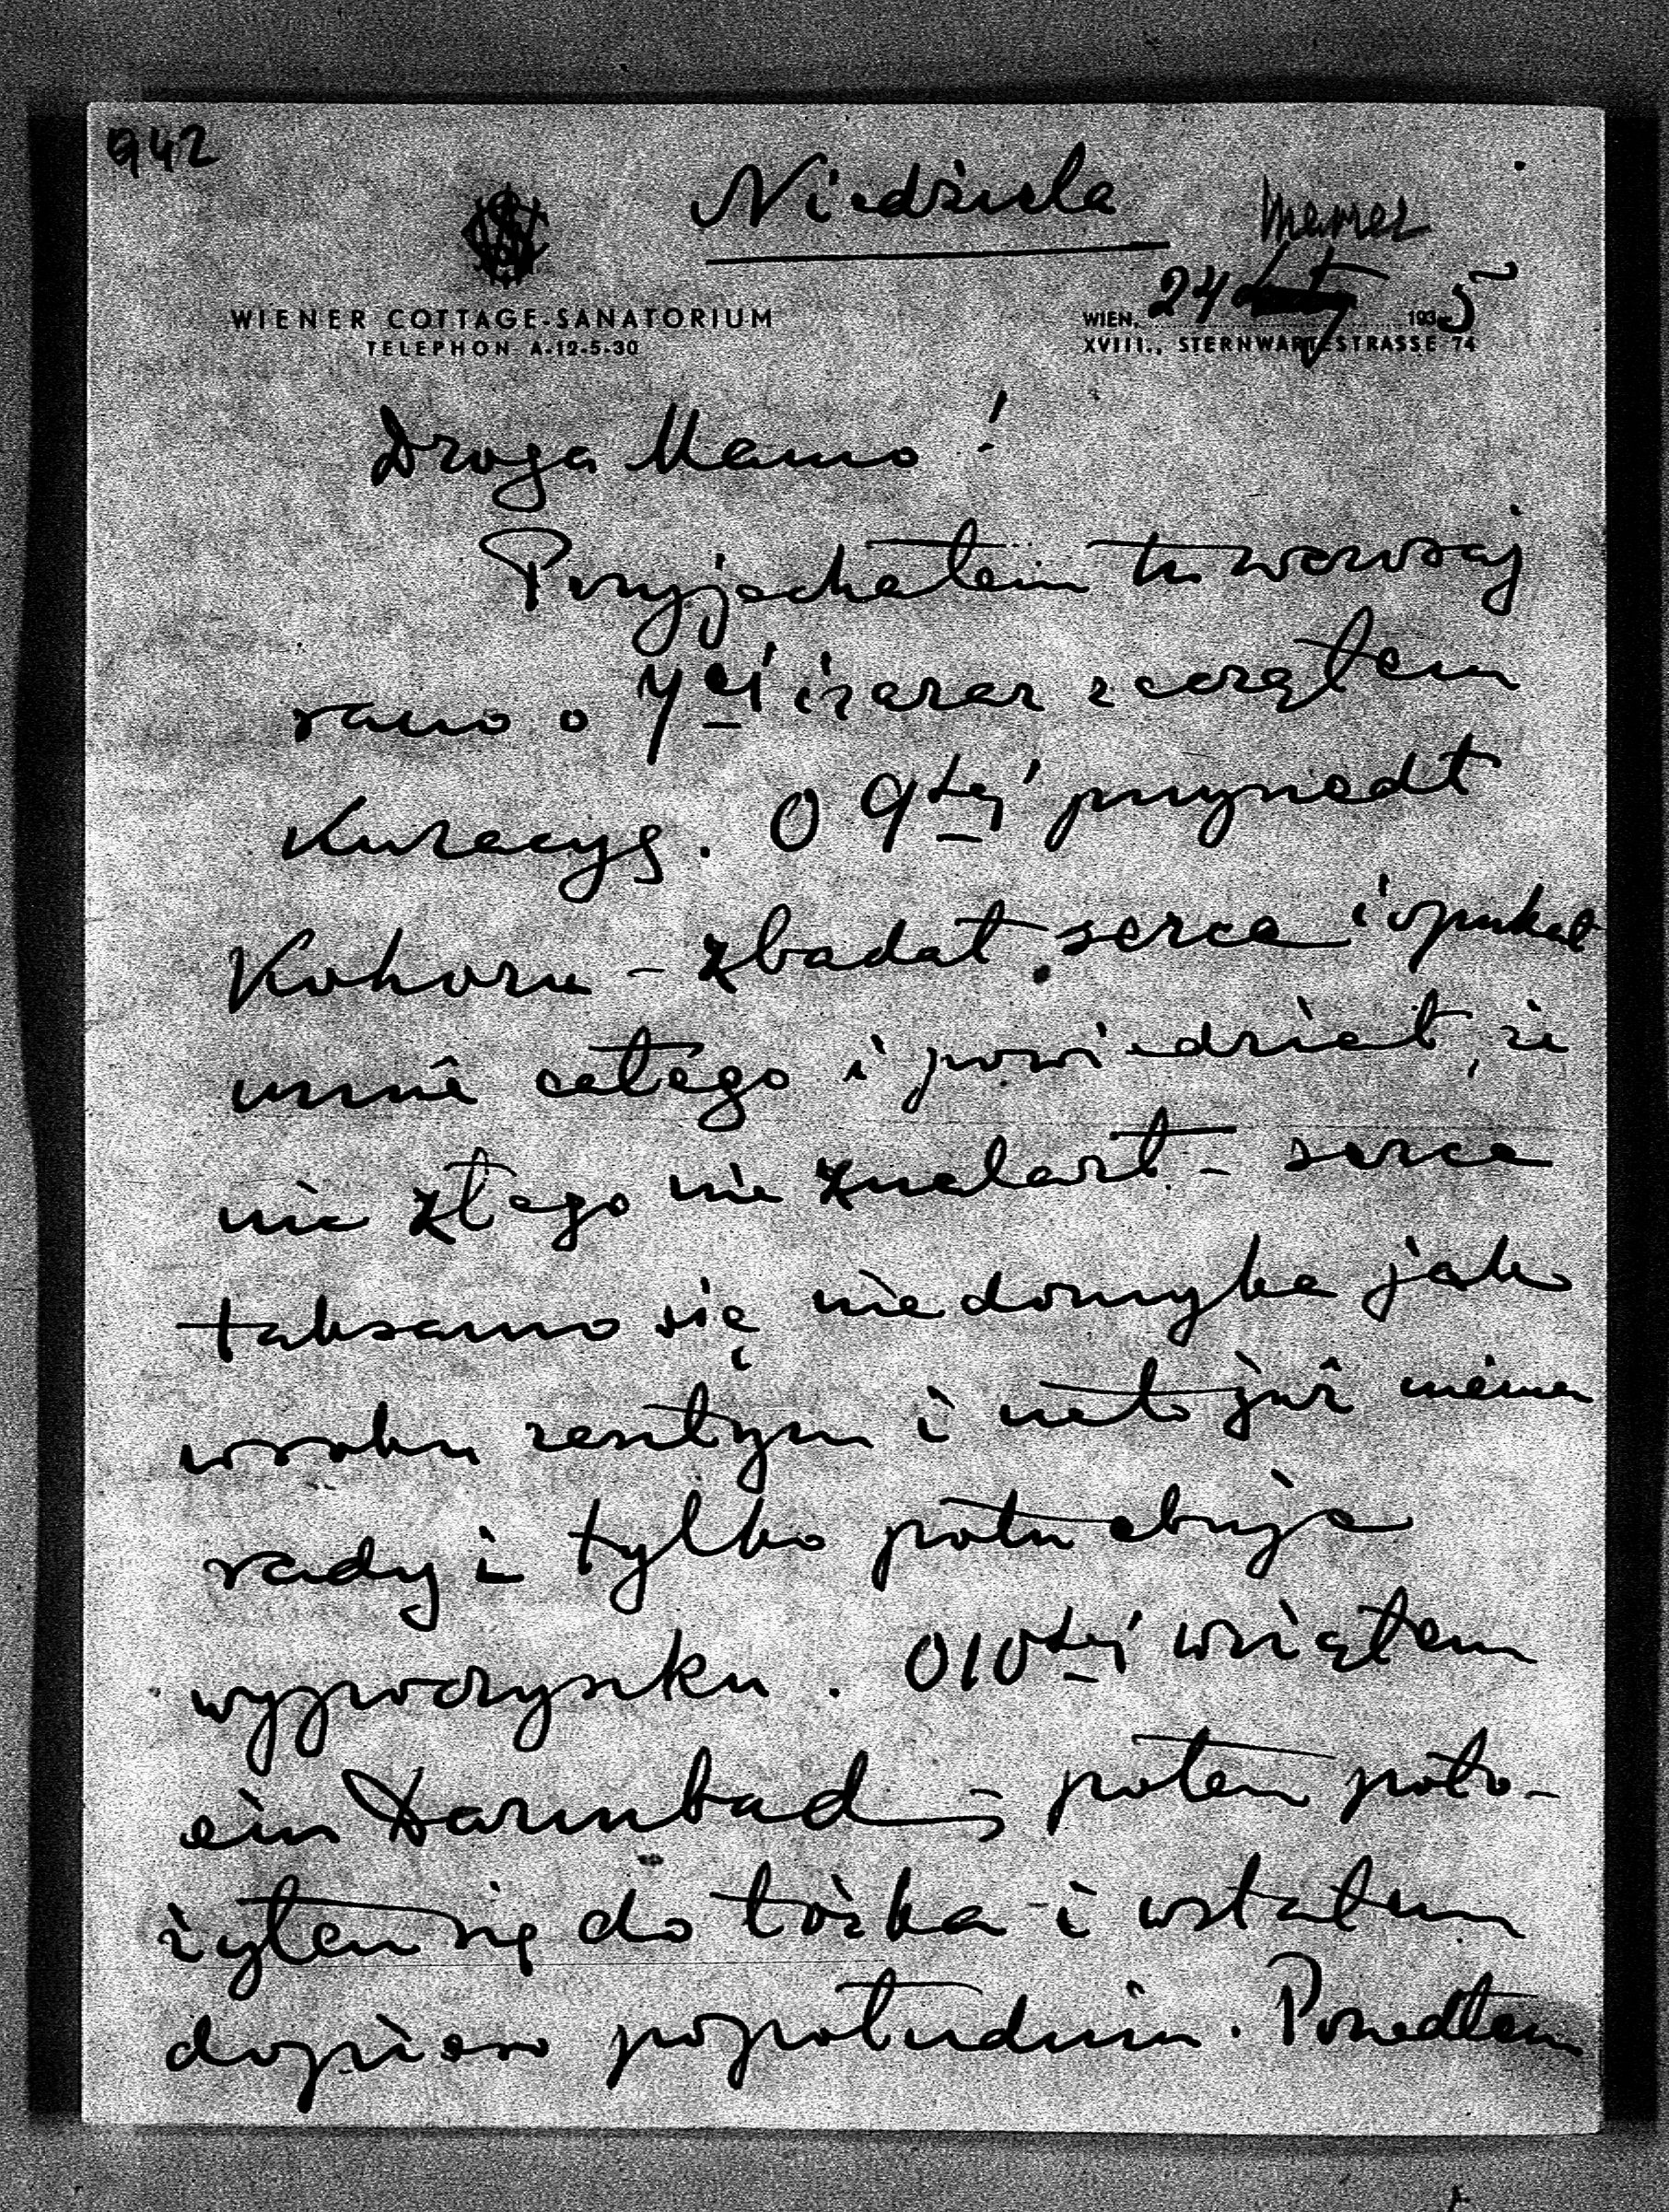 942
Niedziela
marzec
WIENER COTTAGE-SANATORIUM
TELEPHON A-12-5-30
WIEN, 24 luty 1935
XVIII., STERNWARTESTRASSE 74
Droga Mamo!
Przyjechałem tu wczoraj
rano o 7ej i zaraz zacząłem
Kuracyę. O 9tej przyszedł
– zbadał serce i opukał
mnie całego i powiedział, że
nic złego nie znalazł – serce
taksamo się niedomyka jak
w roku zeszłym i na to już niema
rady i tylko potrzebuje
wypoczynku. O 10tej wziąłem
ein Darmbad – potem poło-
żyłem się do łóżka – i wstałem
dopiero popołudniu. Poszedłem